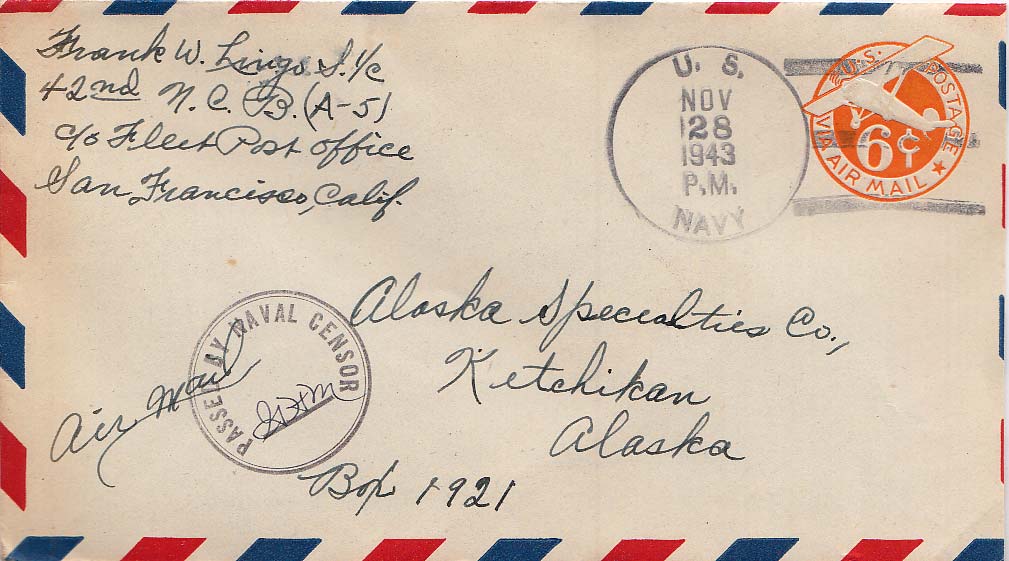 Frank W. Lingo S. 1/c
42nd N. C. B. (A-5)
c/o Fleet Post Office
San Francisco, Calif.
U. S.
NOV
28
1943
P.M.
NAVY
U.S. POSTAGE
6¢
VIA AIR MAIL
Alaska Specialties Co.,
Ketchikan
Alaska
Box 1921
PASSED BY NAVAL CENSOR
Air Mail